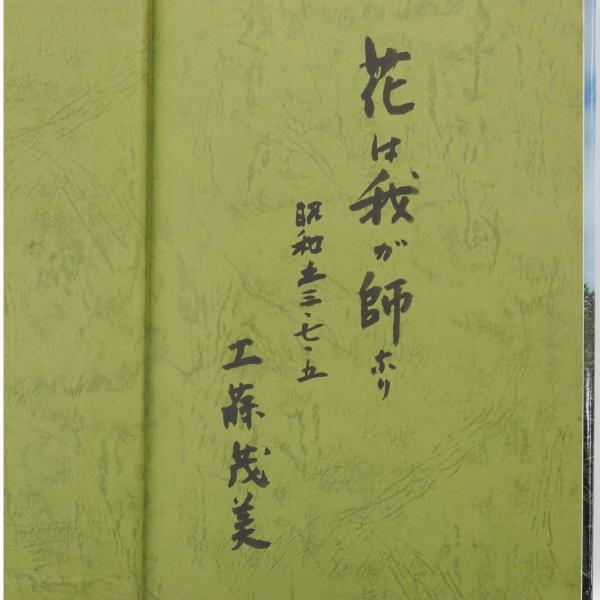 花は我が師なり
昭和五三・七・五
工藤茂美